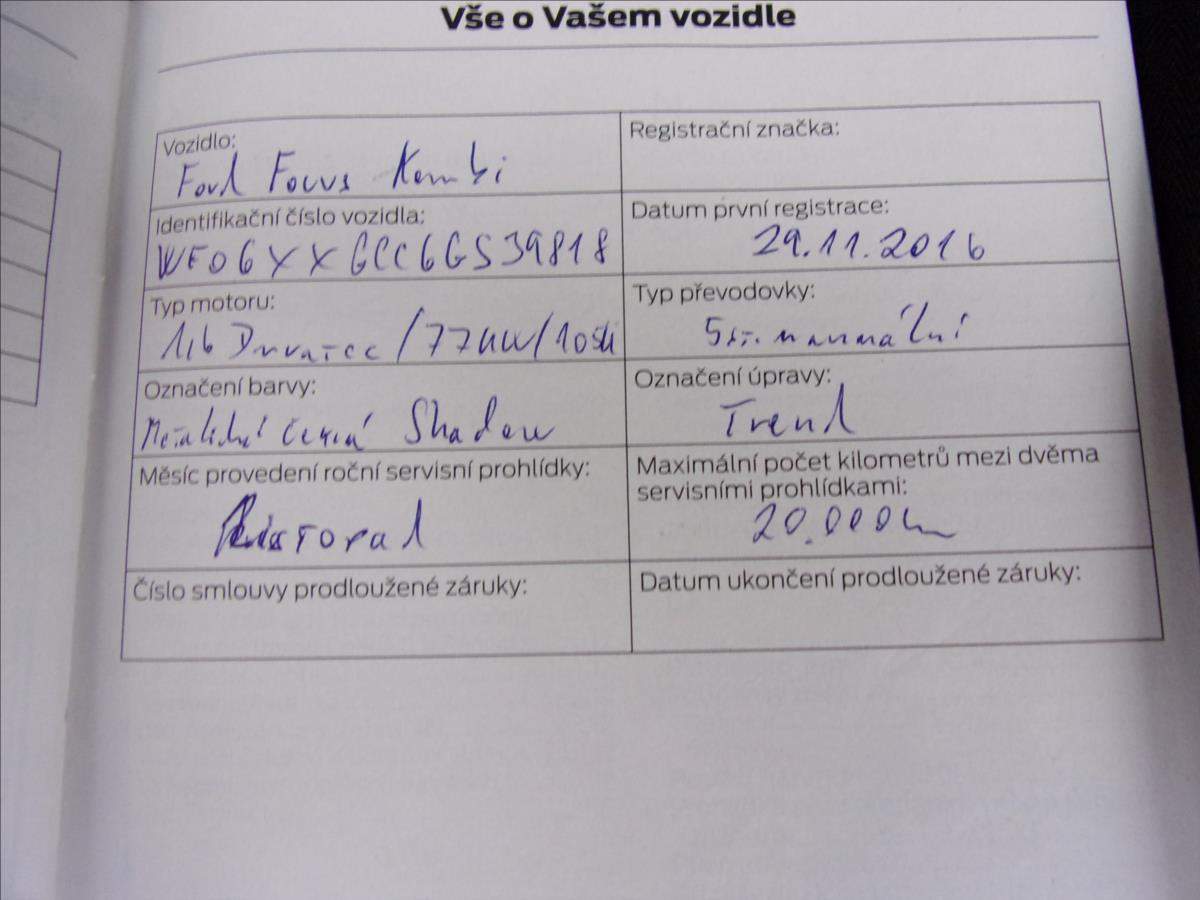 Vše o Vašem vozidle
Vozidlo:
Ford Focus Kombi
Registrační značka:
Identifikační číslo vozidla:
WF06XXGCC6GS39818
Datum první registrace:
29.11.2016
Typ motoru:
1,6 Duratec /77kW/105k
Typ převodovky:
5st. manuální
Označení barvy:
Metalická černá Shadow
Označení úpravy:
Trend
Měsíc provedení roční servisní prohlídky:
Listopad
Maximální počet kilometrů mezi dvěma
servisními prohlídkami:
20.000km
Číslo smlouvy prodloužené záruky:
Datum ukončení prodloužené záruky: